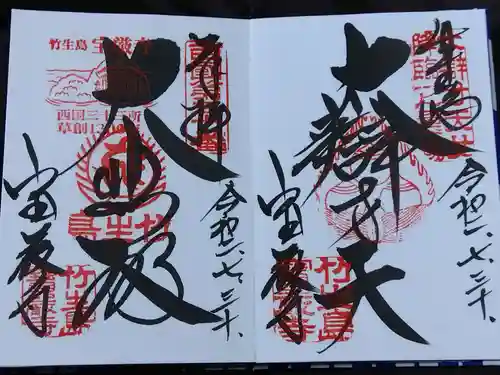 竹生島
大辯才天
宝厳寺
令和二、七、三十、
竹生島
奉拝
大悲殿
宝厳寺
令和二、七、三十、
竹生島 宝厳寺
西国三十三所
草創1300年
竹生島
竹生島